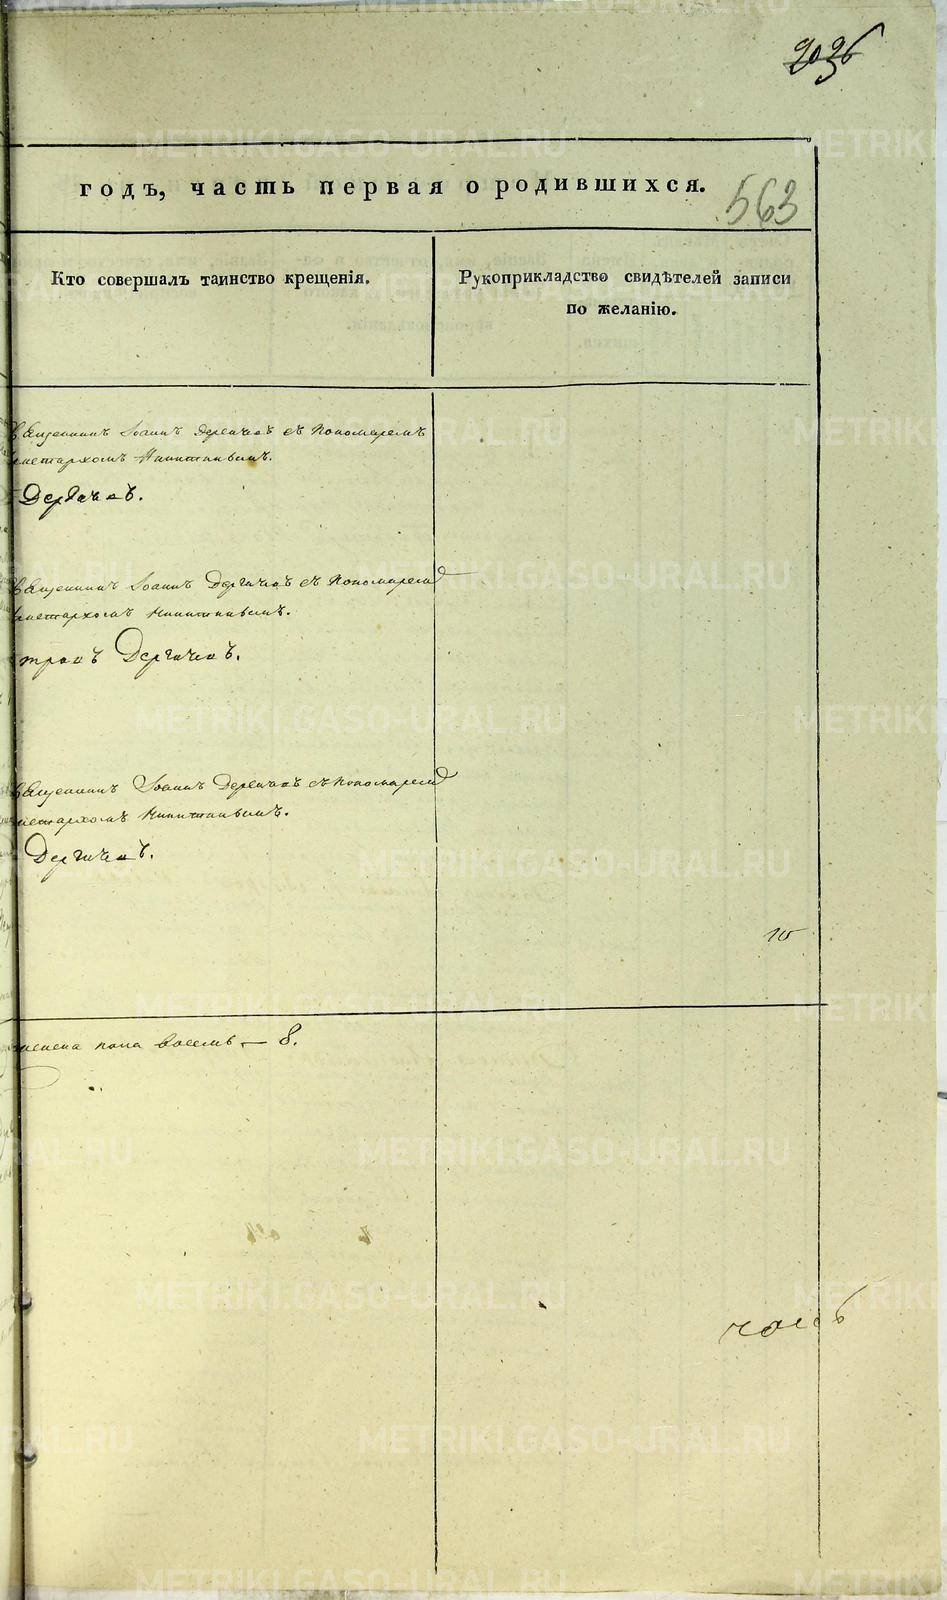 563
годъ, часть первая о родившихся.
Кто совершалъ таинство крещенія.
Рукоприкладство свидѣтелей записи
по желанію.
Священникъ Іоаннъ Дергачевъ съ Пономаремъ
Никитинымъ.
Дергачевъ.
Священникъ Іоаннъ Дергачевъ съ Пономаремъ
Никитинымъ.
Дергачевъ.
Священникъ Іоаннъ Дергачевъ съ Пономаремъ
Никитинымъ.
Дергачевъ.
10
пола восемь — 8.
METRIKI.GASO-URAL.RU